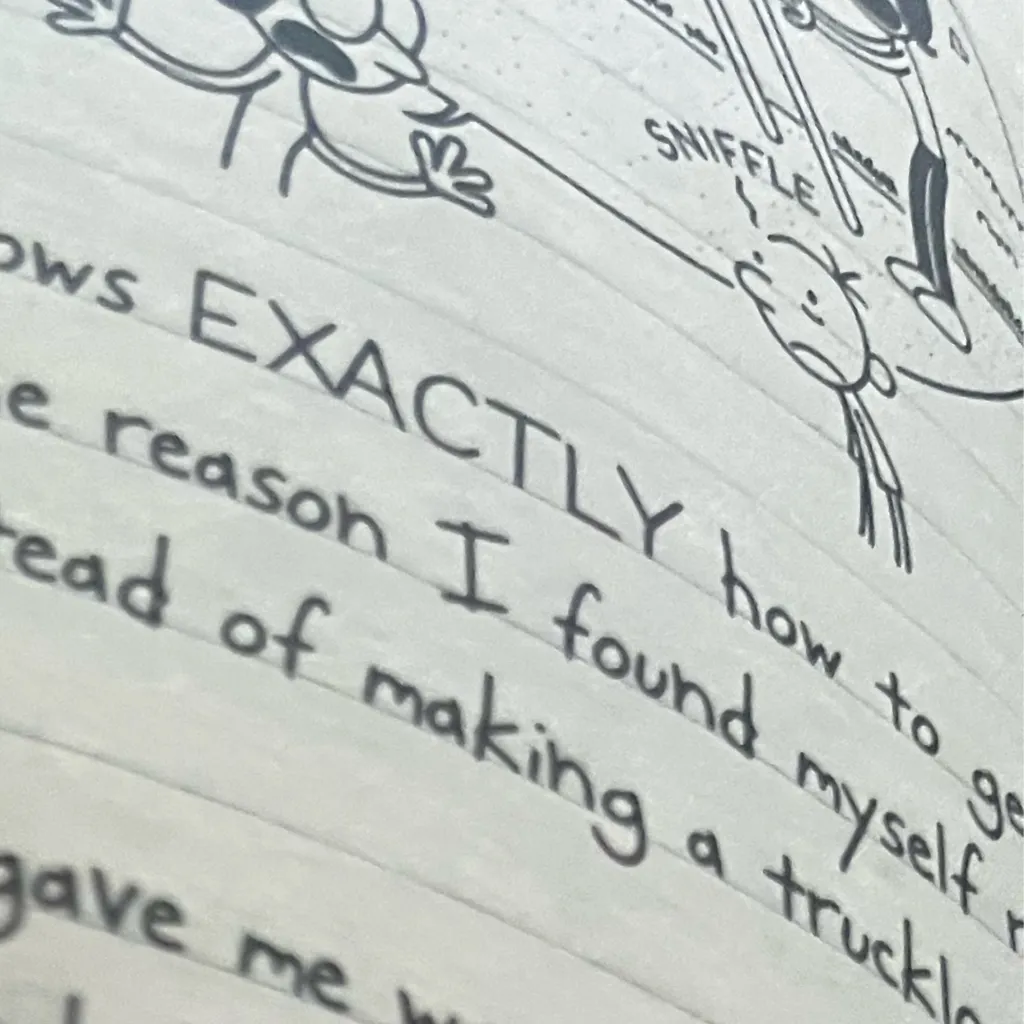 SNIFFLE
ows EXACTLY how to ge
e reason I found myself r
tead of making a trucklo
gave me w